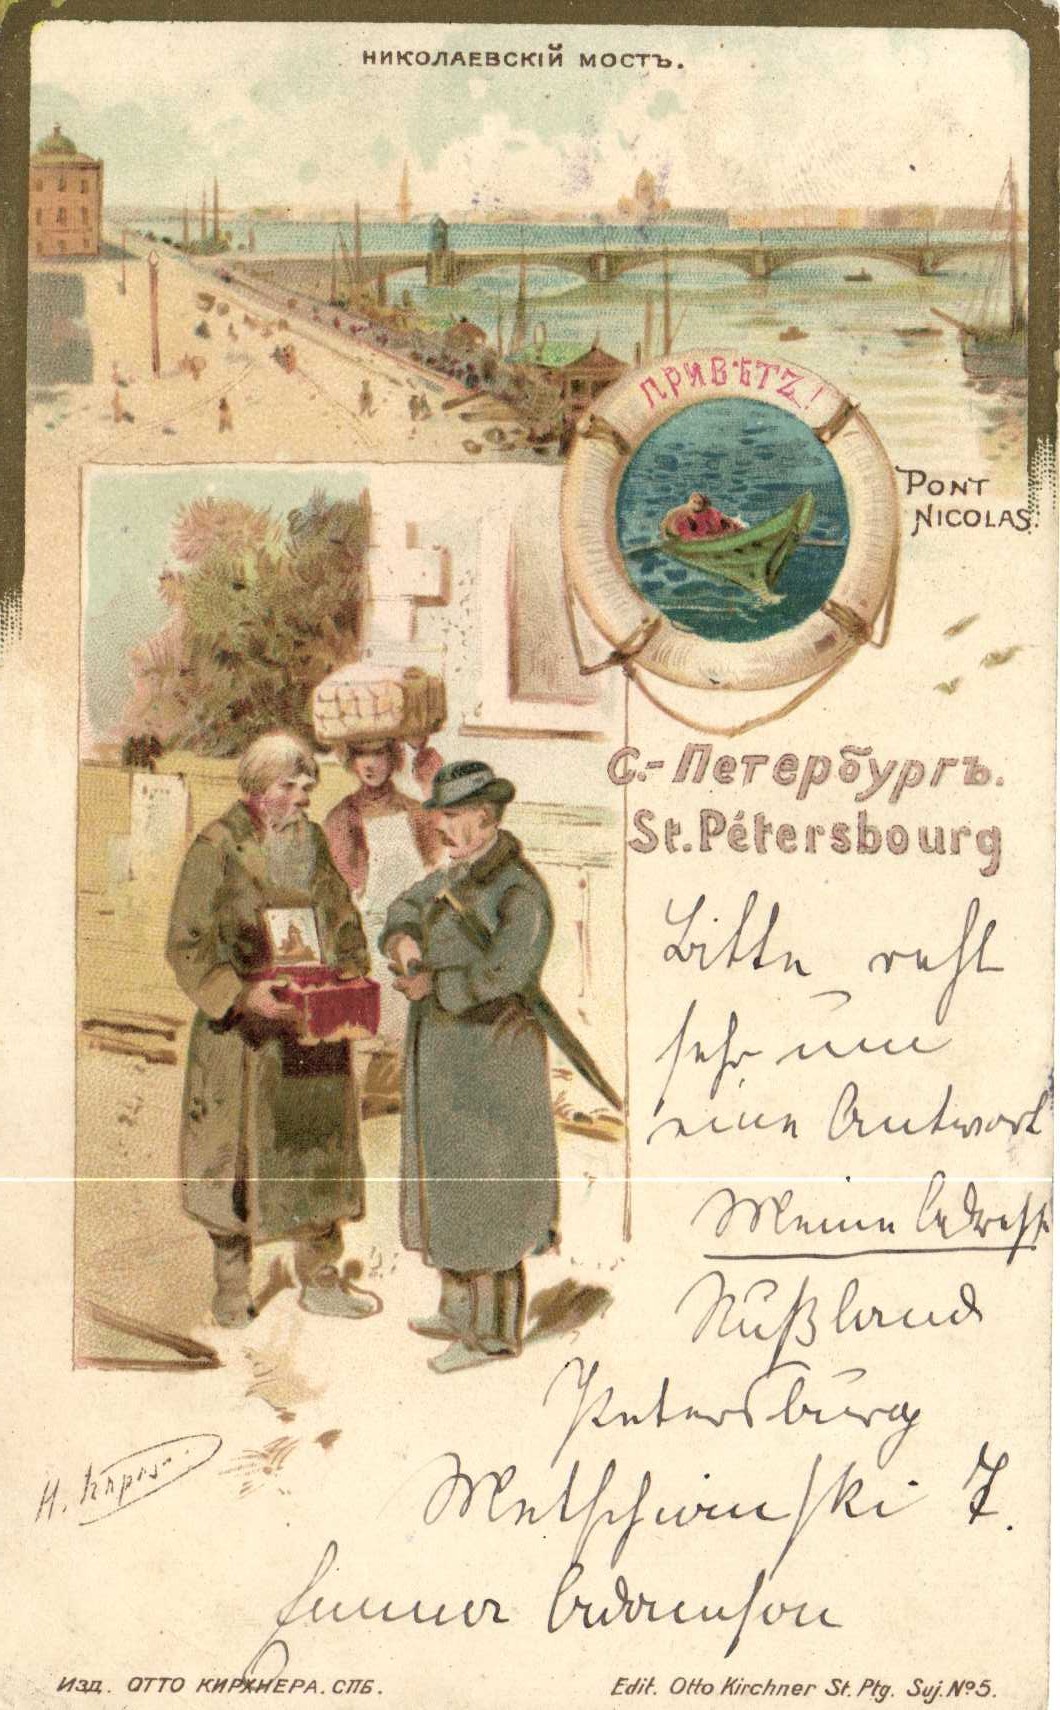 НИКОЛАЕВСКІЙ МОСТЪ.
ПРИВѢТЪ!
PONT
NICOLAS.
С.-Петербургъ.
St. Pétersbourg
Bitte recht
sehr um
eine Antwort
Meine Adresse
Rußland
Petersburg
Metschianski 7.
Emmer Adamson
Н.
Изд. ОТТО КИРХНЕРА. СПБ.
Edit. Otto Kirchner St. Ptg. Suj. № 5.